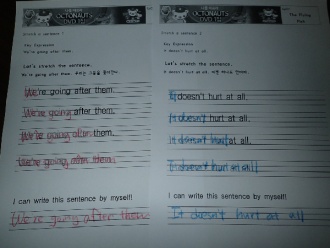 OCTONAUTS
DVD
Stretch a sentence 1
Key Expression
We're going after them.
Let's stretch the sentence.
We're going after them.
We're going after them.
We're going after them.
We're going after them.
We're going after them.
I can write this sentence by myself!
We're going after them
OCTONAUTS
DVD
The Flying
Fish
Stretch a sentence 2
Key Expression
It doesn't hurt at all.
Let's stretch the sentence.
It doesn't hurt at all.
It doesn't hurt at all.
It doesn't hurt at all.
It doesn't hurt at all.
It doesn't hurt at all
I can write this sentence by myself!
It doesn't hurt at all